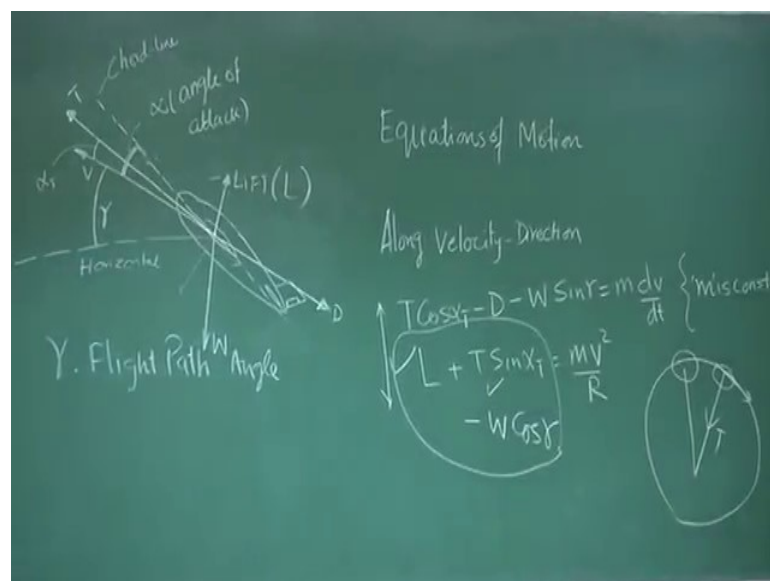 Chord-line
T
α (angle of
attack)
αT
V
γ
LIFT (L)
Horizontal
D
W
γ. Flight Path Angle
Equations of Motion
Along Velocity-Direction
T Cos αT - D - W Sin γ = m dv/dt { 'm' is const
L + T Sin αT = mV²/R
- W Cos γ
T